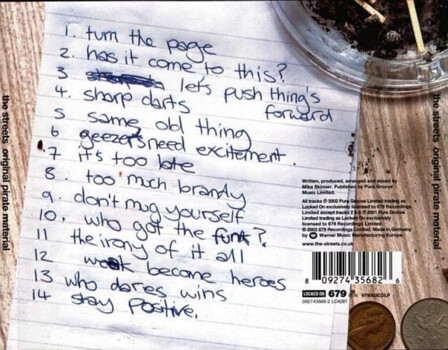 1. turn the page
2. has it come to this?
3 let's push thing's
forward
4. sharp darts
5 same old thing
6 geezers need excitement.
7 it's too late
8 too much brandy
9. don't mug yourself
10. who got the funk?
11 the irony of it all
12 weak become heroes
13 who dares wins
14 stay positive.
the streets original pirate material
the streets original pirate material
Written, produced, arranged and mixed by
Mike Skinner. Published by Pure Groove
Music Limited.
All tracks ℗ 2002 Pure Groove Limited trading as
Locked On exclusively licensed to 679 Recordings
Limited except tracks 2 & ℗ 2001 Pure Groove
Limited trading as Locked On exclusively
licensed to 679 Recordings Limited.
© 2002 679 Recordings Limited. Made in Germany
by Warner Music Manufacturing Europe.
www.the-streets.co.uk
8 09274 35682 6
LOCKED ON 679
092743568 2